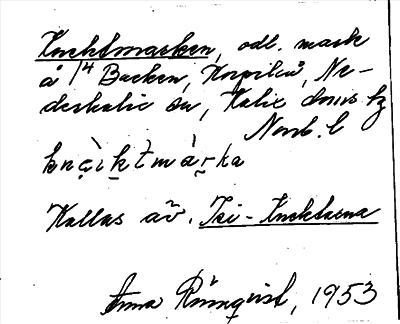 Knektmarken, odl. mark
å 14 Backen, Korpilå, Ne-
derkalix sn, Kalix dms. hg
Norrb. l
Kallas äv. Isi-Knektarna
Anna Rönnqvist, 1953